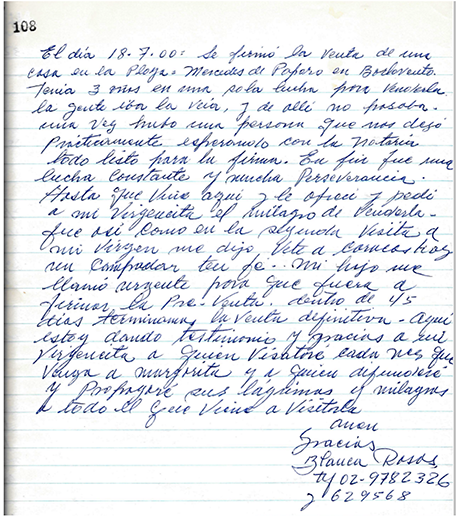 108
El día 18-7.00: Se firmó la Venta de una
casa en la Playa = Mercedes de Papero en Boch
Tenia 3 años en una sola lucha para Venderla
la gente iba la veia, y de alli no pasaba.
una vez hubo una persona que nos dejó
Prácticamente esperando con la notaria
todo listo para la firma. En fin fue una
lucha Constante y mucha Perseverancia.
Hasta que Vine aqui y le ofreci y pedi
a mi Virgencita el milagro de Venderla.
fue asi como en la segunda Visita a
mi Virgen me dijo Vete a Caracas Hay
un Comprador ten fe. Mi hijo me
llamó urgente para que fuera a
firmar la Pre-Venta. dentro de 45
dias terminama la Venta definitiva - Aqui
estoy dando testimonio y gracias a mi
Virgencita a quien Visitaré cada vez que
Venga a margarita y a quien difundiré
y Propagaré sus lágrimas y milagros
a todo el que Viene a Visitarla
amen
Gracias
Blanca Rosas
tf 02-9782326
y 629568